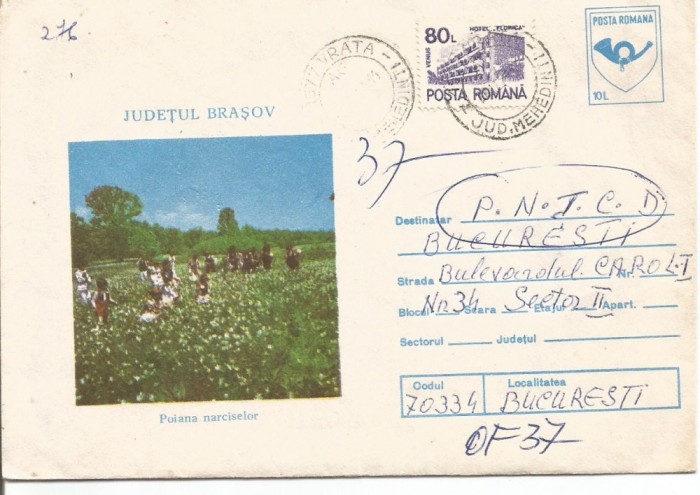 276
VRATA
JUD. MEHEDINȚI
HOTEL "FLORICA"
VENUS
80L
POȘTA ROMÂNĂ
POSTA ROMANA
10L
JUDEȚUL BRAȘOV
37
Destinatar P.N.T.C.D
BUCURESTI
Strada Bulevardul CAROL I Nr.
Blocul Nr 34 Scara Sector II Etajul Apart.
Sectorul Județul
Poiana narciselor
Codul Localitatea
70334 BUCURESTI
OF 37